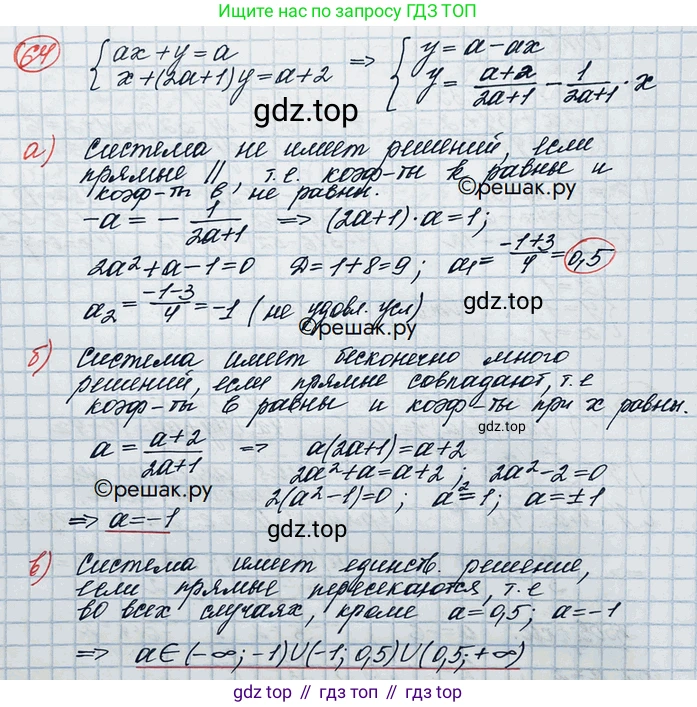 Ищите нас по запросу ГДЗ ТОП
64 { ax+y=a => { y=a-ax
x+(2a+1)y=a+2 y= (a+2)/(2a+1) - 1/(2a+1)·x
gdz.top
а) Система не имеет решений, если
прямые ||, т.е. коэф-ты k равны и
коэф-ты в, не равны.
©решак.ру
-a = - 1/(2a+1) => (2a+1)·a=1;
2a²+a-1=0 D=1+8=9; a₁= (-1+3)/4 = 0,5
a₂ = (-1-3)/4 = -1 (не удовл. усл)
gdz.top
©решак.ру
б) Система имеет бесконечно много
решений, если прямые совпадают, т.е
коэф-ты в равны и коэф-ты при x равны.
gdz.top
a = (a+2)/(2a+1) => a(2a+1)=a+2
2a²+a=a+2; 2a²-2=0
©решак.ру
2(a²-1)=0; a²=1; a=±1
=> a=-1
gdz.top
в) Система имеет единств. решение,
если прямые пересекаются, т.е
во всех случаях, кроме a=0,5; a=-1
=> a∈(-∞;-1)U(-1;0,5)U(0,5;+∞)
gdz.top // gdz.top // gdz.top // gdz.top